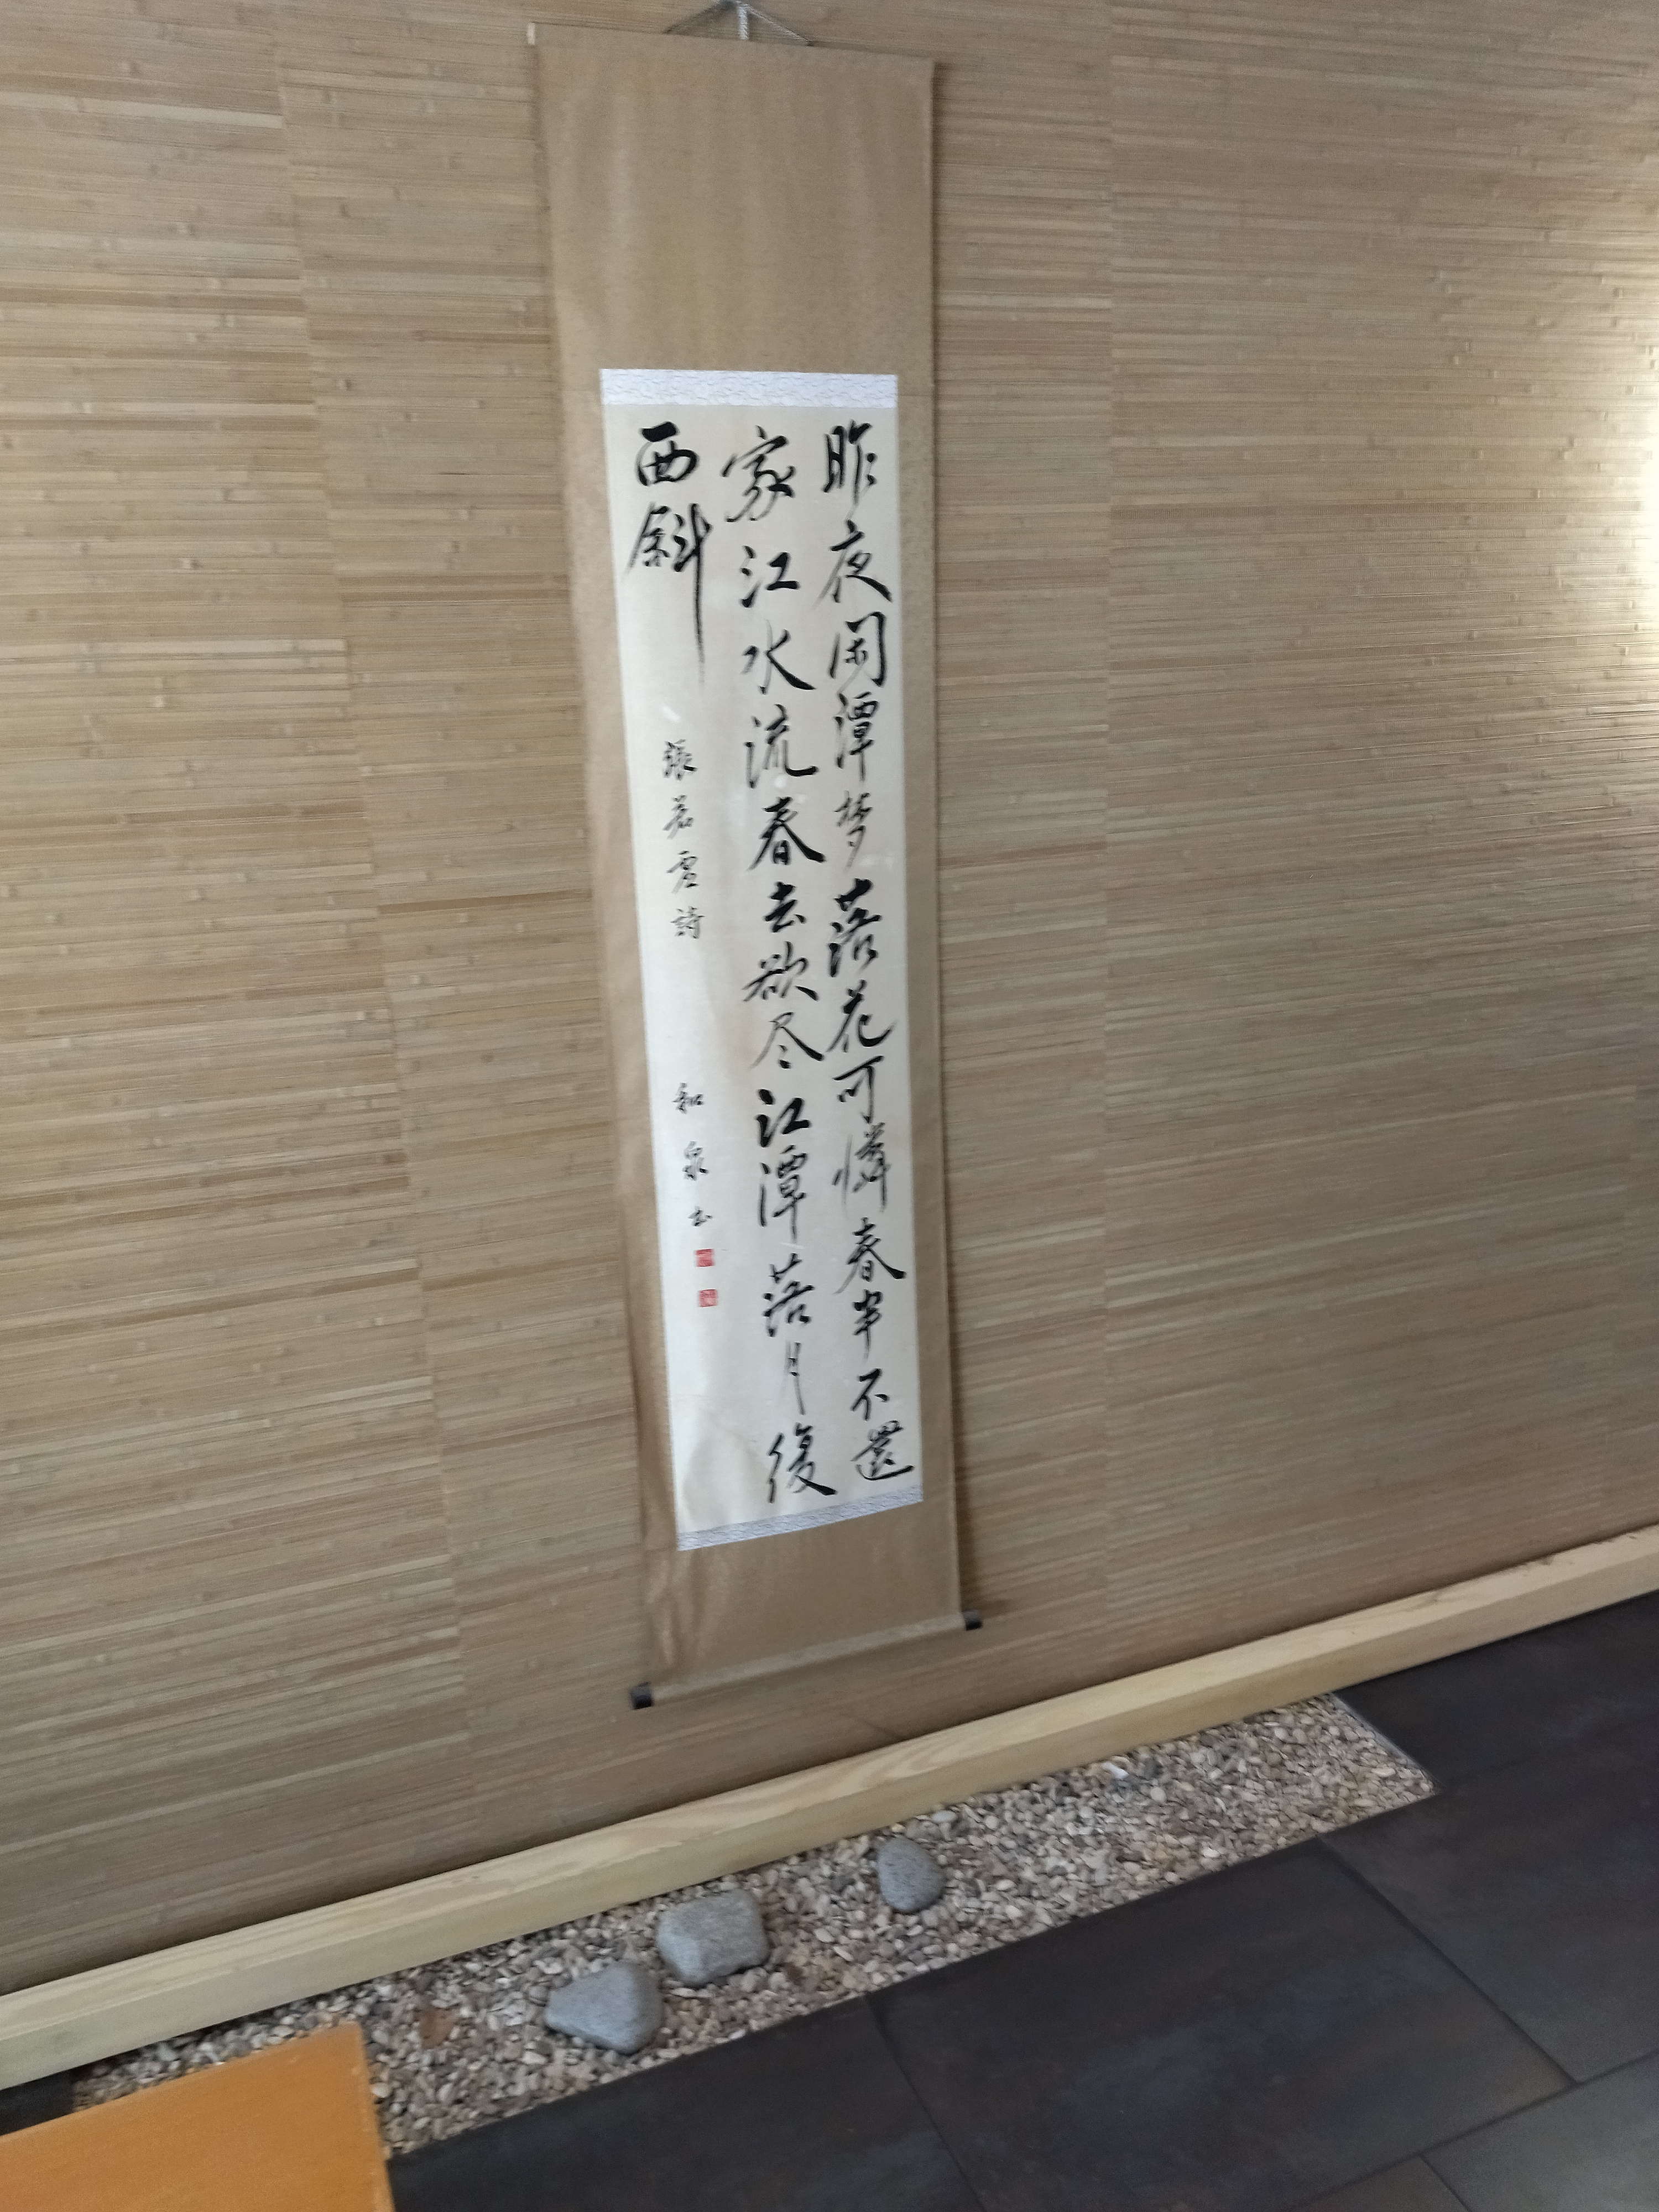 昨夜闲潭梦落花可憐春半不還
家江水流春去欲尽江潭落月復
西斜
張若虛詩
和泉书